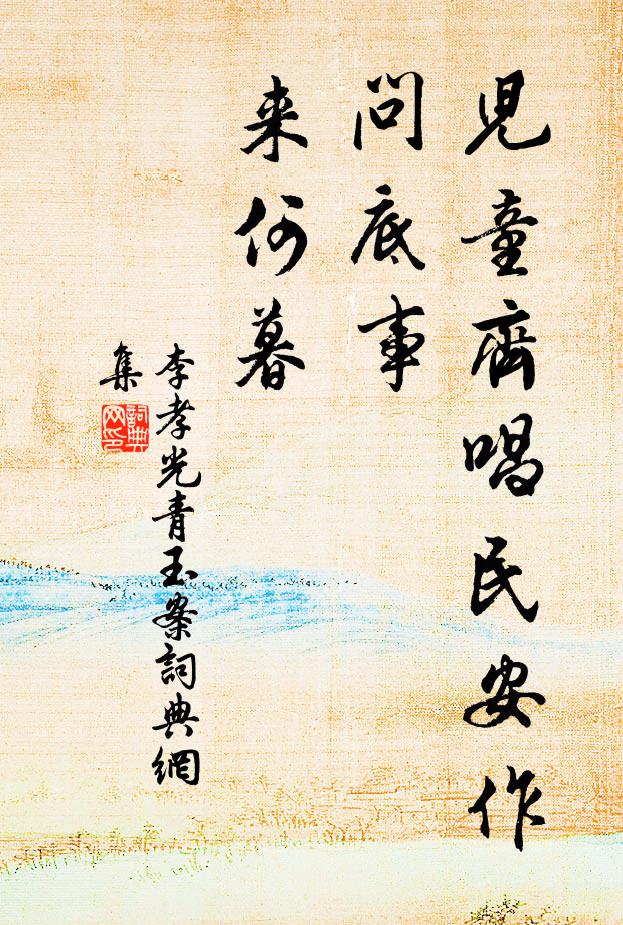 児童齊唱民安作
問底事
来何暮
李孝光青玉案詞典網
集
詞典
网印